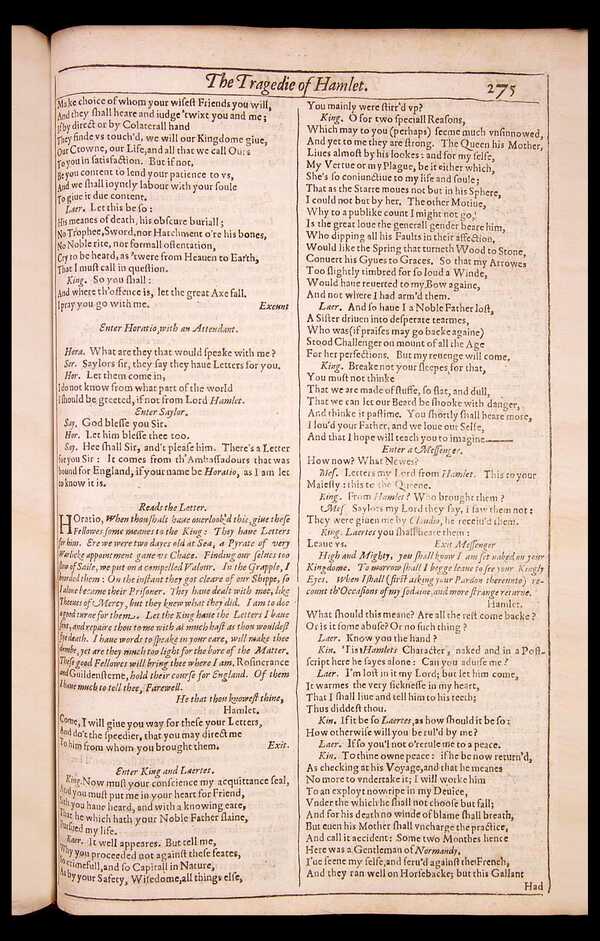 The Tragedie of Hamlet.
275
Make choice of whom your wisest Friends you will,
And they shall heare and iudge 'twixt you and me;
If by direct or by Colaterall hand
They finde vs touch'd, we will our Kingdome giue,
Our Crowne, our Life, and all that we call Ours
To you in satisfaction. But if not,
Be you content to lend your patience to vs,
And we shall ioyntly labour with your soule
To giue it due content.
Laer. Let this be so:
His meanes of death, his obscure buriall;
No Trophee, Sword, nor Hatchment o're his bones,
No Noble rite, nor formall ostentation,
Cry to be heard, as 'twere from Heauen to Earth,
That I must call in question.
King. So you shall:
And where th'offence is, let the great Axe fall.
I pray you go with me. Exeunt
Enter Horatio, with an Attendant.
Hora. What are they that would speake with me?
Ser. Saylors sir, they say they haue Letters for you.
Hor. Let them come in,
I do not know from what part of the world
I should be greeted, if not from Lord Hamlet.
Enter Saylor.
Say. God blesse you Sir.
Hor. Let him blesse thee too.
Say. Hee shall Sir, and't please him. There's a Letter
for you Sir: It comes from th'Ambassadours that was
bound for England, if your name be Horatio, as I am let
to know it is.
Reads the Letter.
Horatio, When thou shalt haue overlook'd this, giue these
Fellowes some meanes to the King: They haue Letters
for him. Ere we were two dayes old at Sea, a Pyrate of very
Warlicke appointment gaue vs Chace. Finding our selues too
slow of Saile, we put on a compelled Valour. In the Grapple, I
boorded them: On the instant they got cleare of our Shippe, so
I alone became their Prisoner. They haue dealt with mee, like
Theeues of Mercy, but they knew what they did. I am to doe
a good turne for them. Let the King haue the Letters I haue
sent, and repaire thou to me with as much hast as thou wouldest
flye death. I haue words to speake in your eare, will make thee
dumbe, yet are they much too light for the bore of the Matter.
These good Fellowes will bring thee where I am. Rosincrance
and Guildensterne, hold their course for England. Of them
I haue much to tell thee, Farewell.
He that thou knowest thine,
Hamlet.
Come, I will giue you way for these your Letters,
And do't the speedier, that you may direct me
To him from whom you brought them. Exit.
Enter King and Laertes.
King. Now must your conscience my acquittance seal,
And you must put me in your heart for Friend,
Sith you haue heard, and with a knowing eare,
That he which hath your Noble Father slaine,
Pursued my life.
Laer. It well appeares. But tell me,
Why you proceeded not against these feates,
So crimefull, and so Capitall in Nature,
As by your Safety, Wisedome, all things else,
You mainly were stirr'd vp?
King. O for two speciall Reasons,
Which may to you (perhaps) seeme much vnsinnowed,
And yet to me they are strong. The Queen his Mother,
Liues almost by his lookes: and for my selfe,
My Vertue or my Plague, be it either which,
She's so coniunctiue to my life and soule;
That as the Starre moues not but in his Sphere,
I could not but by her. The other Motiue,
Why to a publike count I might not go,
Is the great loue the generall gender beare him,
Who dipping all his Faults in their affection,
Would like the Spring that turneth Wood to Stone,
Conuert his Gyues to Graces. So that my Arrowes
Too slightly timbred for so loud a Winde,
Would haue reuerted to my Bow againe,
And not where I had arm'd them.
Laer. And so haue I a Noble Father lost,
A Sister driuen into desperate tearmes,
Who was (if praises may go backe againe)
Stood Challenger on mount of all the Age
For her perfections. But my reuenge will come.
King. Breake not your sleepes for that,
You must not thinke
That we are made of stuffe, so flat, and dull,
That we can let our Beard be shooke with danger,
And thinke it pastime. You shortly shall heare more,
I lou'd your Father, and we loue our Selfe,
And that I hope will teach you to imagine——
Enter a Messenger.
How now? What Newes?
Mes. Letters my Lord from Hamlet. This to your
Maiesty: this to the Queene.
King. From Hamlet? Who brought them?
Mes. Saylors my Lord they say, I saw them not:
They were giuen me by Claudio, he receiu'd them.
King. Laertes you shall heare them:
Leaue vs. Exit Messenger
High and Mighty, you shall know I am set naked on your
Kingdome. To morrow shall I begge leaue to see your Kingly
Eyes. When I shall (first asking your Pardon thereunto) re-
count th'Occasions of my sodaine, and more strange returne.
Hamlet.
What should this meane? Are all the rest come backe?
Or is it some abuse? Or no such thing?
Laer. Know you the hand?
Kin. 'Tis Hamlets Character, naked and in a Post-
script here he sayes alone: Can you aduise me?
Laer. I'm lost in it my Lord; but let him come,
It warmes the very sicknesse in my heart,
That I shall liue and tell him to his teeth;
Thus diddest thou.
Kin. If it be so Laertes, as how should it be so:
How otherwise will you be rul'd by me?
Laer. If so you'l not o'rerule me to a peace.
Kin. To thine owne peace: if he be now return'd,
As checking at his Voyage, and that he meanes
No more to vndertake it; I will worke him
To an exployt now ripe in my Deuice,
Vnder the which he shall not choose but fall;
And for his death no winde of blame shall breath,
But euen his Mother shall vncharge the practice,
And call it accident: Some two Monthes hence
Here was a Gentleman of Normandy,
I'ue seene my selfe, and seru'd against the French,
And they ran well on Horsebacke; but this Gallant
Had